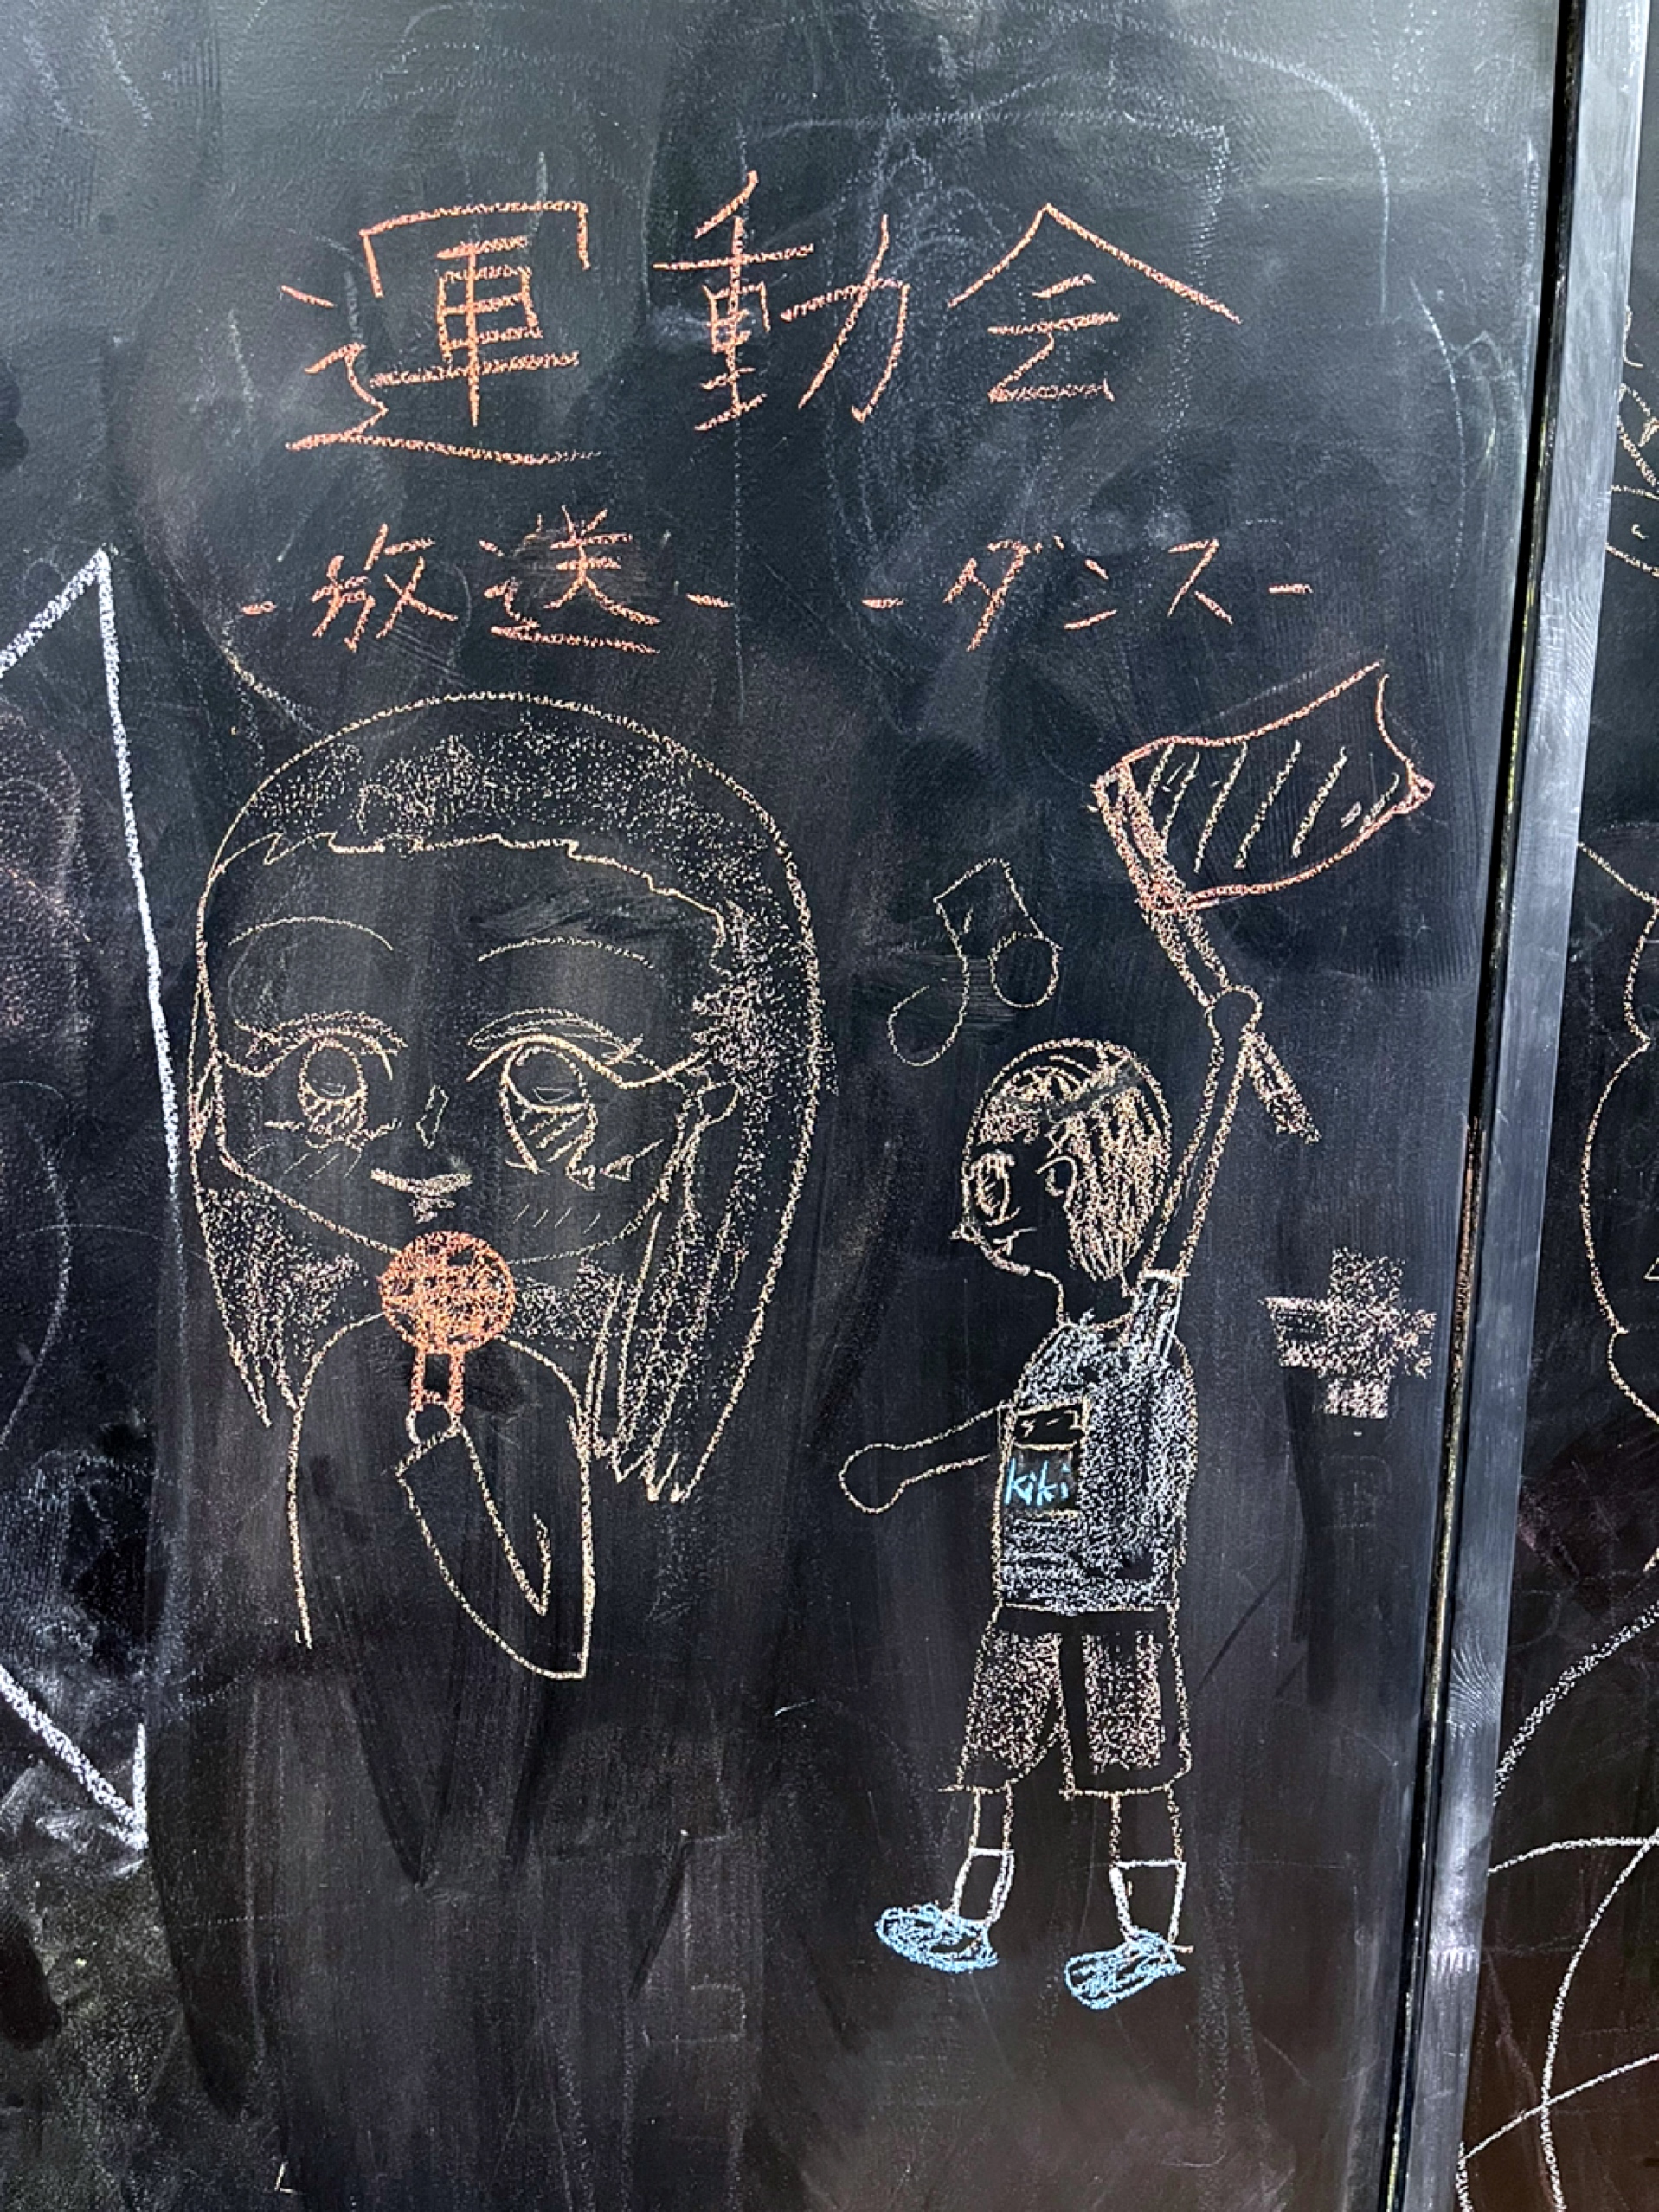 運動会
-放送- -ダンス-
kiki